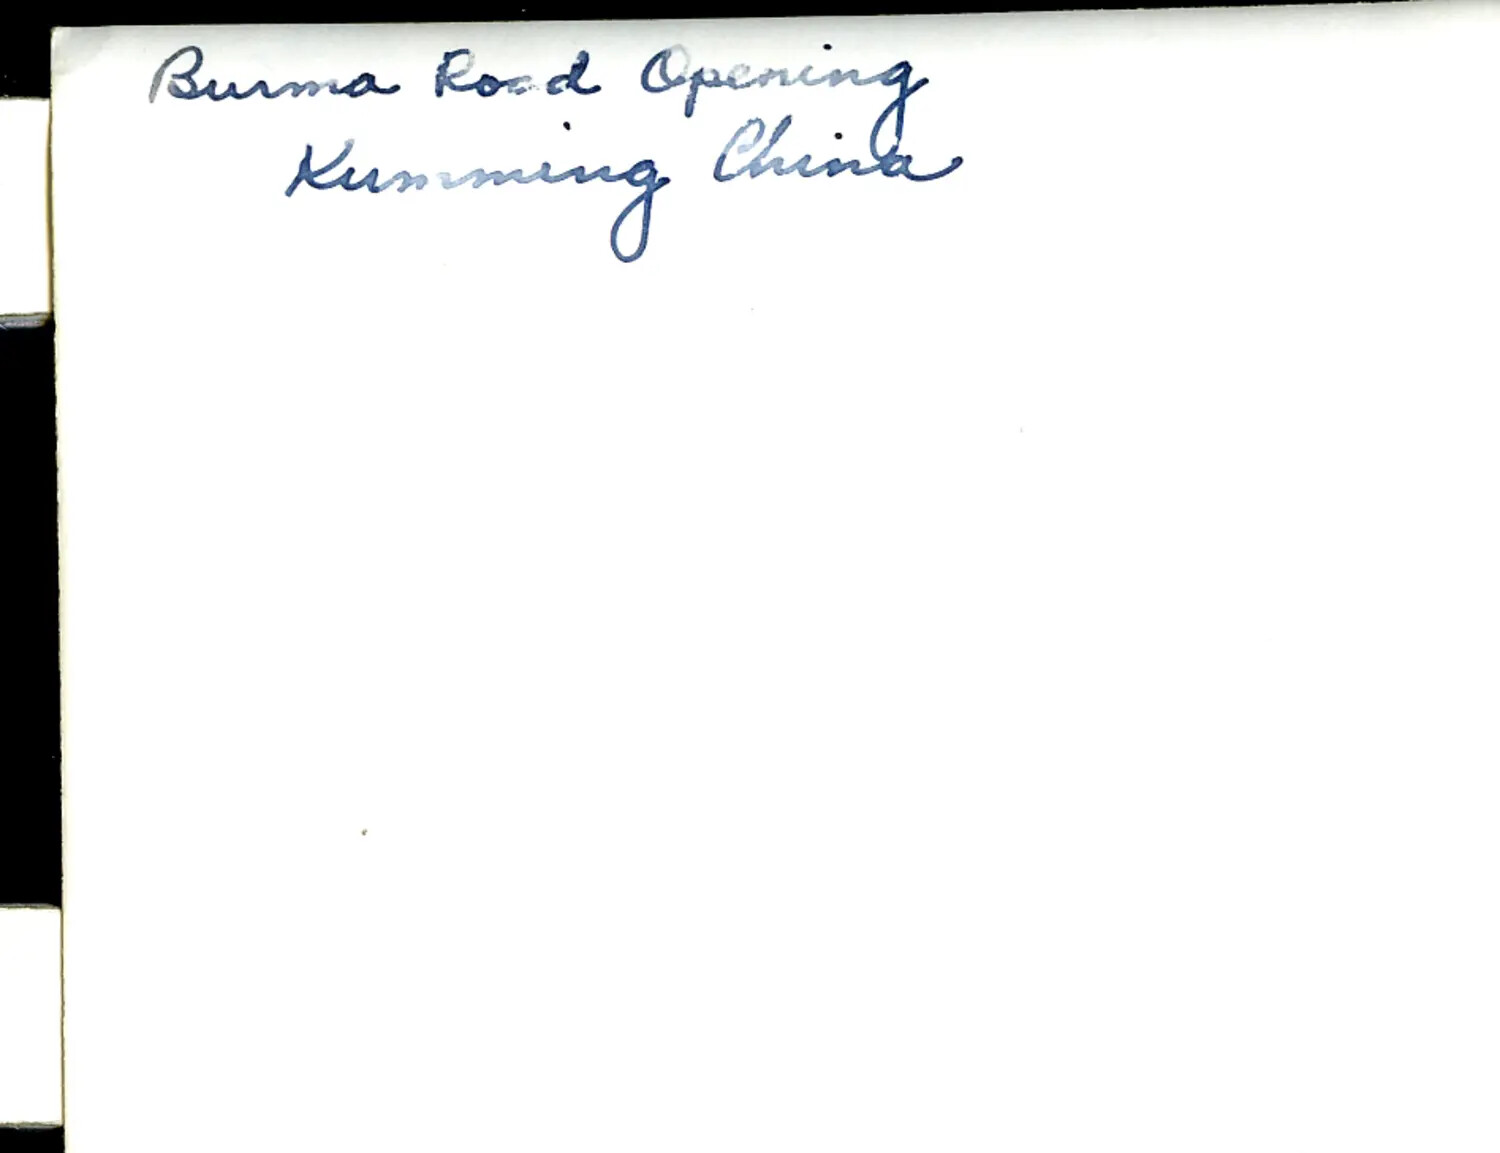 Burma Road Opening
Kumming China